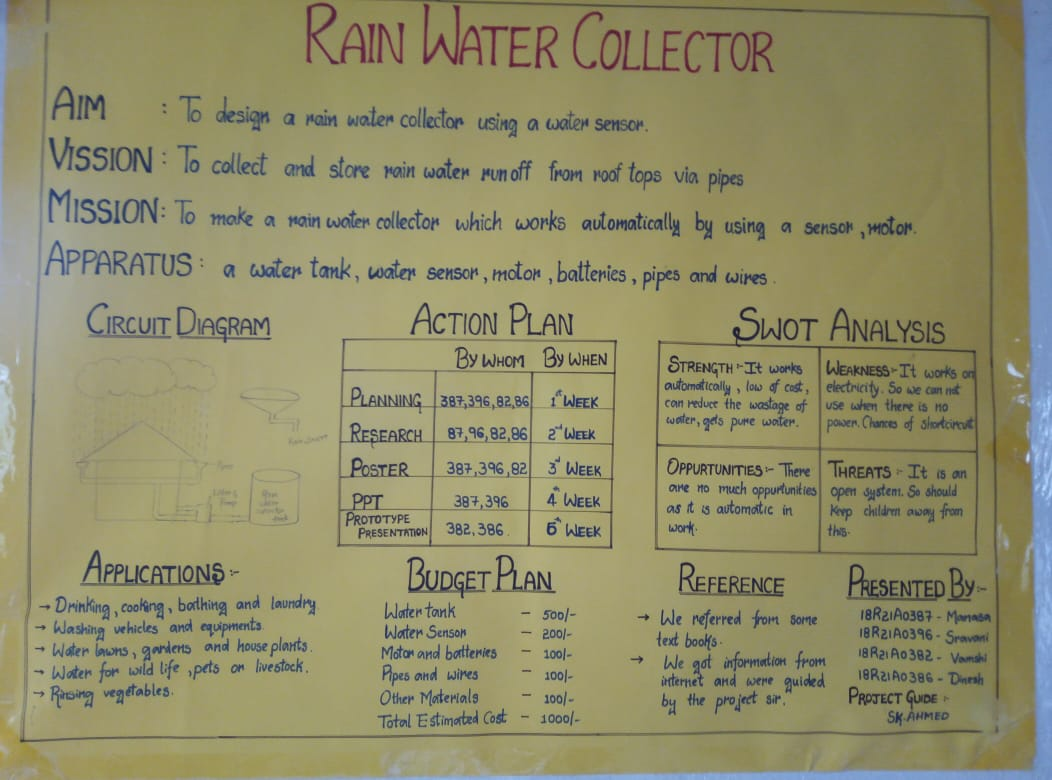 RAIN WATER COLLECTOR
AIM : To design a rain water collector using a water sensor.
VISSION : To collect and store rain water runoff from roof tops via pipes
MISSION : To make a rain water collector which works automatically by using a sensor, motor.
APPARATUS : a water tank, water sensor, motor, batteries, pipes and wires.
CIRCUIT DIAGRAM
ACTION PLAN
BY WHOM BY WHEN
PLANNING 387,396,82,86 1st WEEK
RESEARCH 87,96,82,86 2nd WEEK
POSTER 387,396,82 3rd WEEK
PPT 387,396 4th WEEK
PROTOTYPE
PRESENTATION 382,386. 5th WEEK
SWOT ANALYSIS
STRENGTH :- It works
automatically, low of cost,
can reduce the wastage of
water, gets pure water.
WEAKNESS :- It works on
electricity. So we can not
use when there is no
power. Chances of shortcircuit
OPPURTUNITIES :- There
are no much oppurtunities
as it is automatic in
work.
THREATS :- It is an
open system. So should
keep children away from
this.
APPLICATIONS :-
→ Drinking, cooking, bathing and laundry.
→ Washing vehicles and equipments.
→ Water lawns, gardens and house plants.
→ Water for wild life, pets or livestock.
→ Rinsing vegetables.
BUDGET PLAN
Water tank - 500/-
Water Sensor - 200/-
Motor and batteries - 100/-
Pipes and wires - 100/-
Other Materials - 100/-
Total Estimated Cost - 1000/-
REFERENCE
→ We referred from some
text books.
→ We got information from
internet and were guided
by the project sir.
PRESENTED BY :-
18R21A0387 - Manasa
18R21A0396 - Sravani
18R21A0382 - Vamshi
18R21A0386 - Dinesh
PROJECT GUIDE :-
SK.AHMED